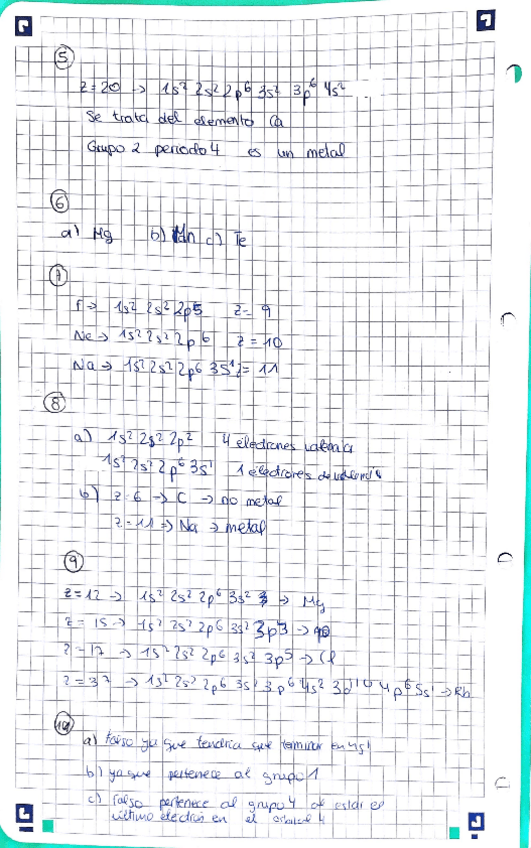 5
Z=20 → 1s² 2s² 2p⁶ 3s² 3p⁶ 4s²
Se trata del elemento Ca
Grupo 2 periodo 4 es un metal
6
a) Mg b) Mn c) Te
7
F → 1s² 2s² 2p5 Z= 9
Ne → 1s² 2s² 2p 6 Z = 10
Na → 1s² 2s² 2p6 3s¹ Z= 11
8
a) 1s² 2s² 2p² 4 electrones valencia
1s² 2s² 2p⁶ 3s¹ 1 electrones de valencia
b) Z=6 → C → no metal
Z=11 → Na → metal
9
Z=12 → 1s² 2s² 2p⁶ 3s² → Mg
Z= 15 → 1s² 2s² 2p⁶ 3s² 3p3 →
Z=17 → 1s² 2s² 2p6 3s² 3p5 → Cl
Z=37 → 1s² 2s² 2p6 3s² 3p6 4s² 3d¹⁰ 4p6 5s¹ → Rb
10
a) falso ya que tendria que terminar en 4s¹
b) ya que pertenece al grupo 1
c) falso pertenece al grupo 4 al estar el
ultimo electrón en el orbital 4